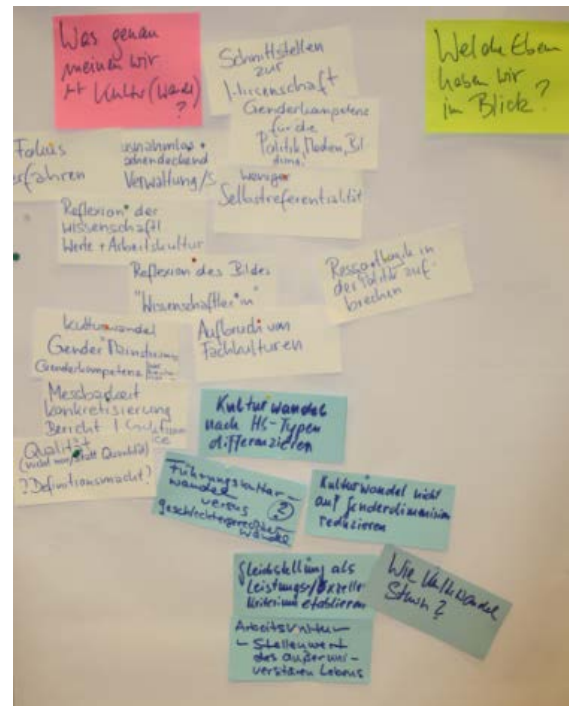 Was genau
meinen wir
Kultur(wandel)
?
Schnittstellen
zur
Genderkompetenz
für die
Politik, Medien, Bil
dung,
Welche Eben
haben wir
im Blick?
Fokus
erfahren
Verwaltung/S
weniger
Selbstreferentialität
Reflexion der
wissenschaftl
Werte + Arbeitskultur
Reflexion des Bildes
"Wissenschaftler*in"
Ressortlogik in
der Politik auf-
brechen
Kulturwandel
Gender Mainstreaming
Genderkompetenz
Aufbruch von
Fachkulturen
Messbarkeit
Konkretisierung
Bericht
Qualität
(nicht nur/statt Quantität)
? Definitionsmacht?
Kulturwandel
nach HS-Typen
differenzieren
Führungskultur-
wandel
versus
geschlechtergerechter
wandel
?
Kulturwandel nicht
auf Genderdimension
reduzieren
Gleichstellung als
Leistungs-/
Kriterium etablieren
Wie Kulturwandel
Arbeitskultur
- Stellenwert
des außeruni-
versitären Lebens